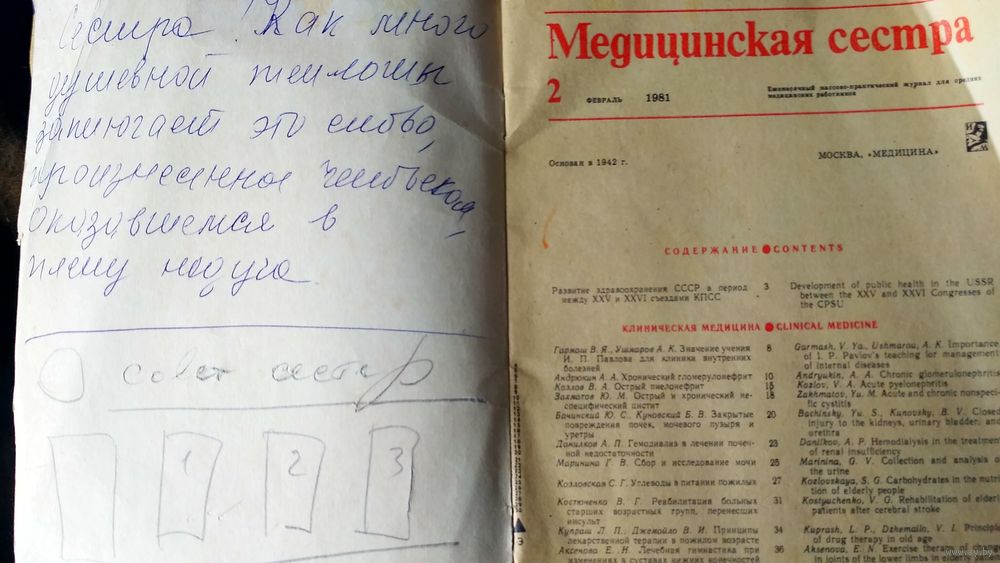 Сестра! Как много
душевной теплоты
запрягает это слово,
произнесенное человеком,
оказавшемся в
плену недуга
совет сестер
1 2 3
Медицинская сестра
2 ФЕВРАЛЬ 1981
Ежемесячный массово-практический журнал для средних
медицинских работников
Основан в 1942 г.
МОСКВА, «МЕДИЦИНА»
СОДЕРЖАНИЕ ● CONTENTS
Развитие здравоохранения СССР в период
между XXV и XXVI съездами КПСС
3
Development of public health in the USSR
between the XXV and XXVI Congresses of
the CPSU
КЛИНИЧЕСКАЯ МЕДИЦИНА ● CLINICAL MEDICINE
Гармаш В. Я., Ушмаров А. К. Значение учения
И. П. Павлова для клиники внутренних
болезней
8
Андрюкин А. А. Хронический гломерулонефрит 10
Козлов В. А. Острый пиелонефрит 15
Захматов Ю. М. Острый и хронический не-
специфический цистит
18
Бачинский Ю. С., Куновский Б. В. Закрытые
повреждения почек, мочевого пузыря и
уретры
20
Данилков А. П. Гемодиализ в лечении почеч-
ной недостаточности
23
Маринина Г. В. Сбор и исследование мочи 25
Козловская С. Г. Углеводы в питании пожилых 27
Костюченко В. Г. Реабилитация больных
старших возрастных групп, перенесших
инсульт
31
Купраш Л. П., Джемайло В. И. Принципы
лекарственной терапии в пожилом возрасте
34
Аксенова Е. Н. Лечебная гимнастика при
изменениях в суставах нижних конечностей
36
Garmash, V. Ya., Ushmarou, A. K. Importance
of I. P. Pavlov's teaching for management
of internal diseases
Andryukin, A. A. Chronic glomerulonephritis
Kozlov, V. A. Acute pyelonephritis
Zakhmatov, Yu. M. Acute and chronic nonspeci-
fic cystitis
Bachinsky, Yu. S., Kunovsky, B. V. Closed
injury to the kidneys, urinary bladder, and
urethra
Danilkov, A. P. Hemodialysis in the treatment
of renal insufficiency
Marinina, G. V. Collection and analysis of
the urine
Kozlovskaya, S. G. Carbohydrates in the nutri-
tion of elderly people
Kostyuchenko, V. G. Rehabilitation of elderly
patients after cerebral stroke
Kuprash, L. P., Dzhemailo, V. I. Principles
of drug therapy in old age
Aksenova, E. N. Exercise therapy of changes
in joints of the lower limbs in elderly